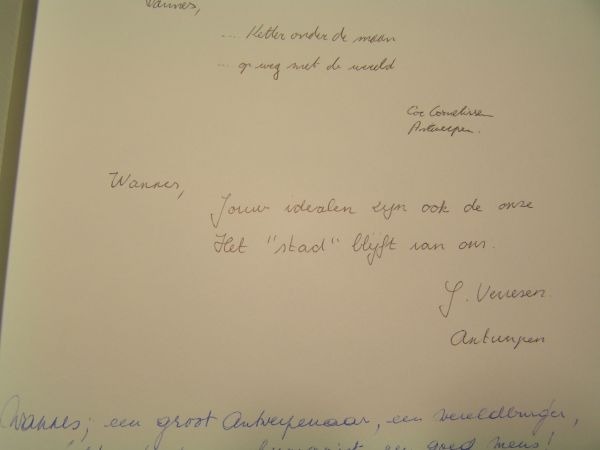 Wannes,
.... Ketter onder de maan
... op weg met de wereld
Cor Cornelissen
Antwerpen.
Wannes,
Jouw idealen zijn ook de onze
Het "stad" blijft van ons.
Antwerpen
Wannes; een groot Antwerpenaar, een wereldburger,
een goed mens!